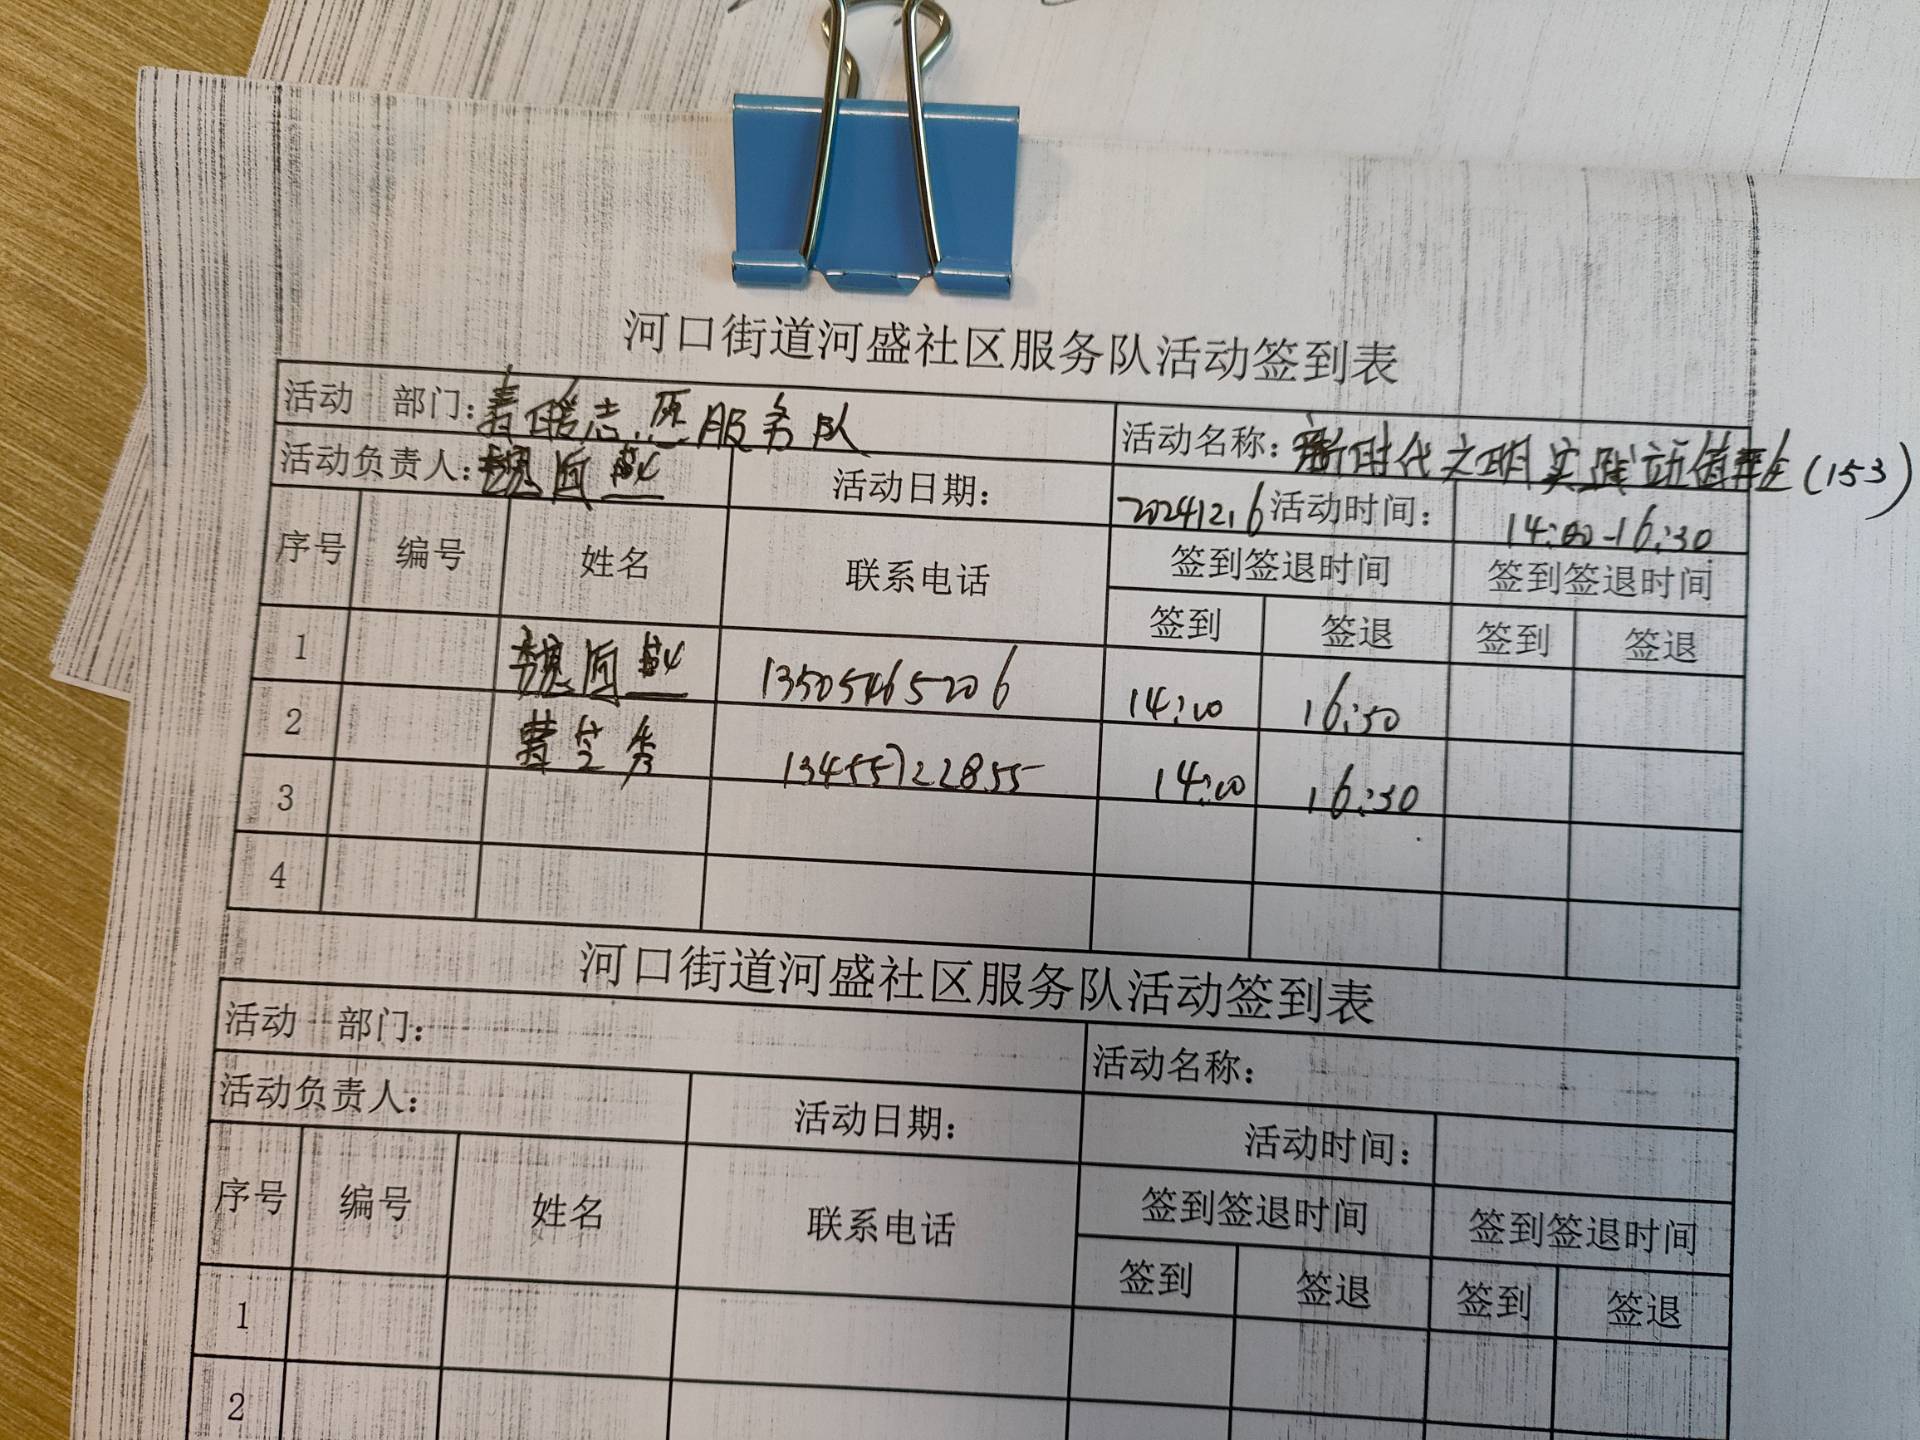 河口街道河盛社区服务队活动签到表
活动 部门：春暖志愿服务队 活动名称：新时代文明实践站值班(153)
活动负责人：魏 活动日期： 2024.12.6 活动时间： 14:00-16:30
序号 编号 姓名 联系电话 签到签退时间 签到签退时间
签到 签退 签到 签退
1 魏 13505465206 14:00 16:30
2 芝秀 13455722855 14:00 16:30
3
4
河口街道河盛社区服务队活动签到表
活动 部门： 活动名称：
活动负责人： 活动日期： 活动时间：
序号 编号 姓名 联系电话 签到签退时间 签到签退时间
签到 签退 签到 签退
1
2